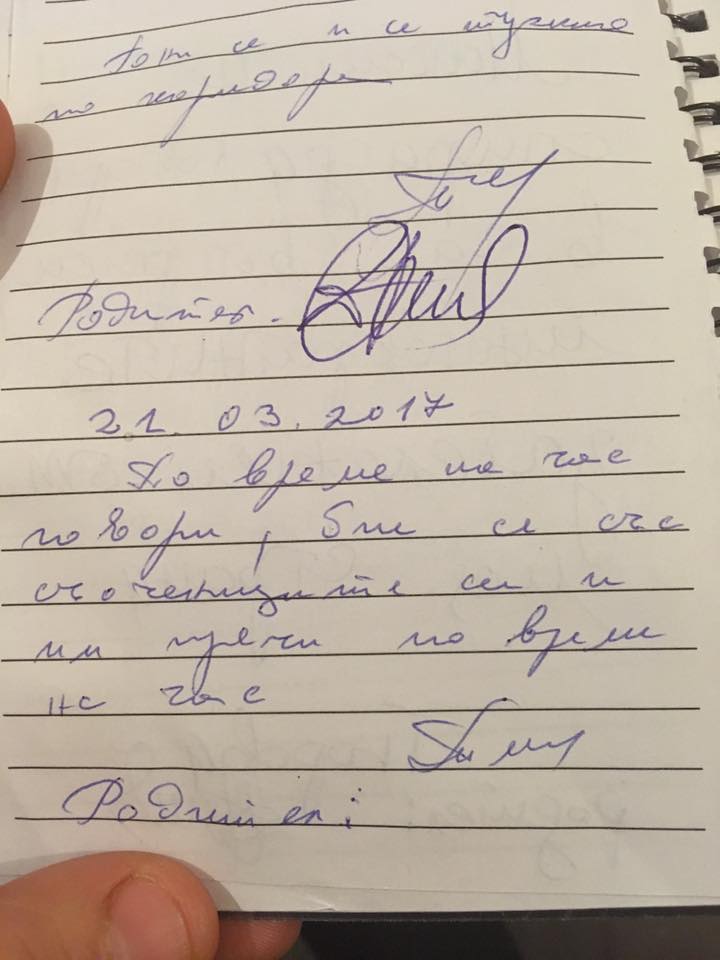 се и се
по коридора
Родител.
21. 03. 2017
По време на час
говори, бие се със
съучениците си и
им пречи по време
на час
Родител: